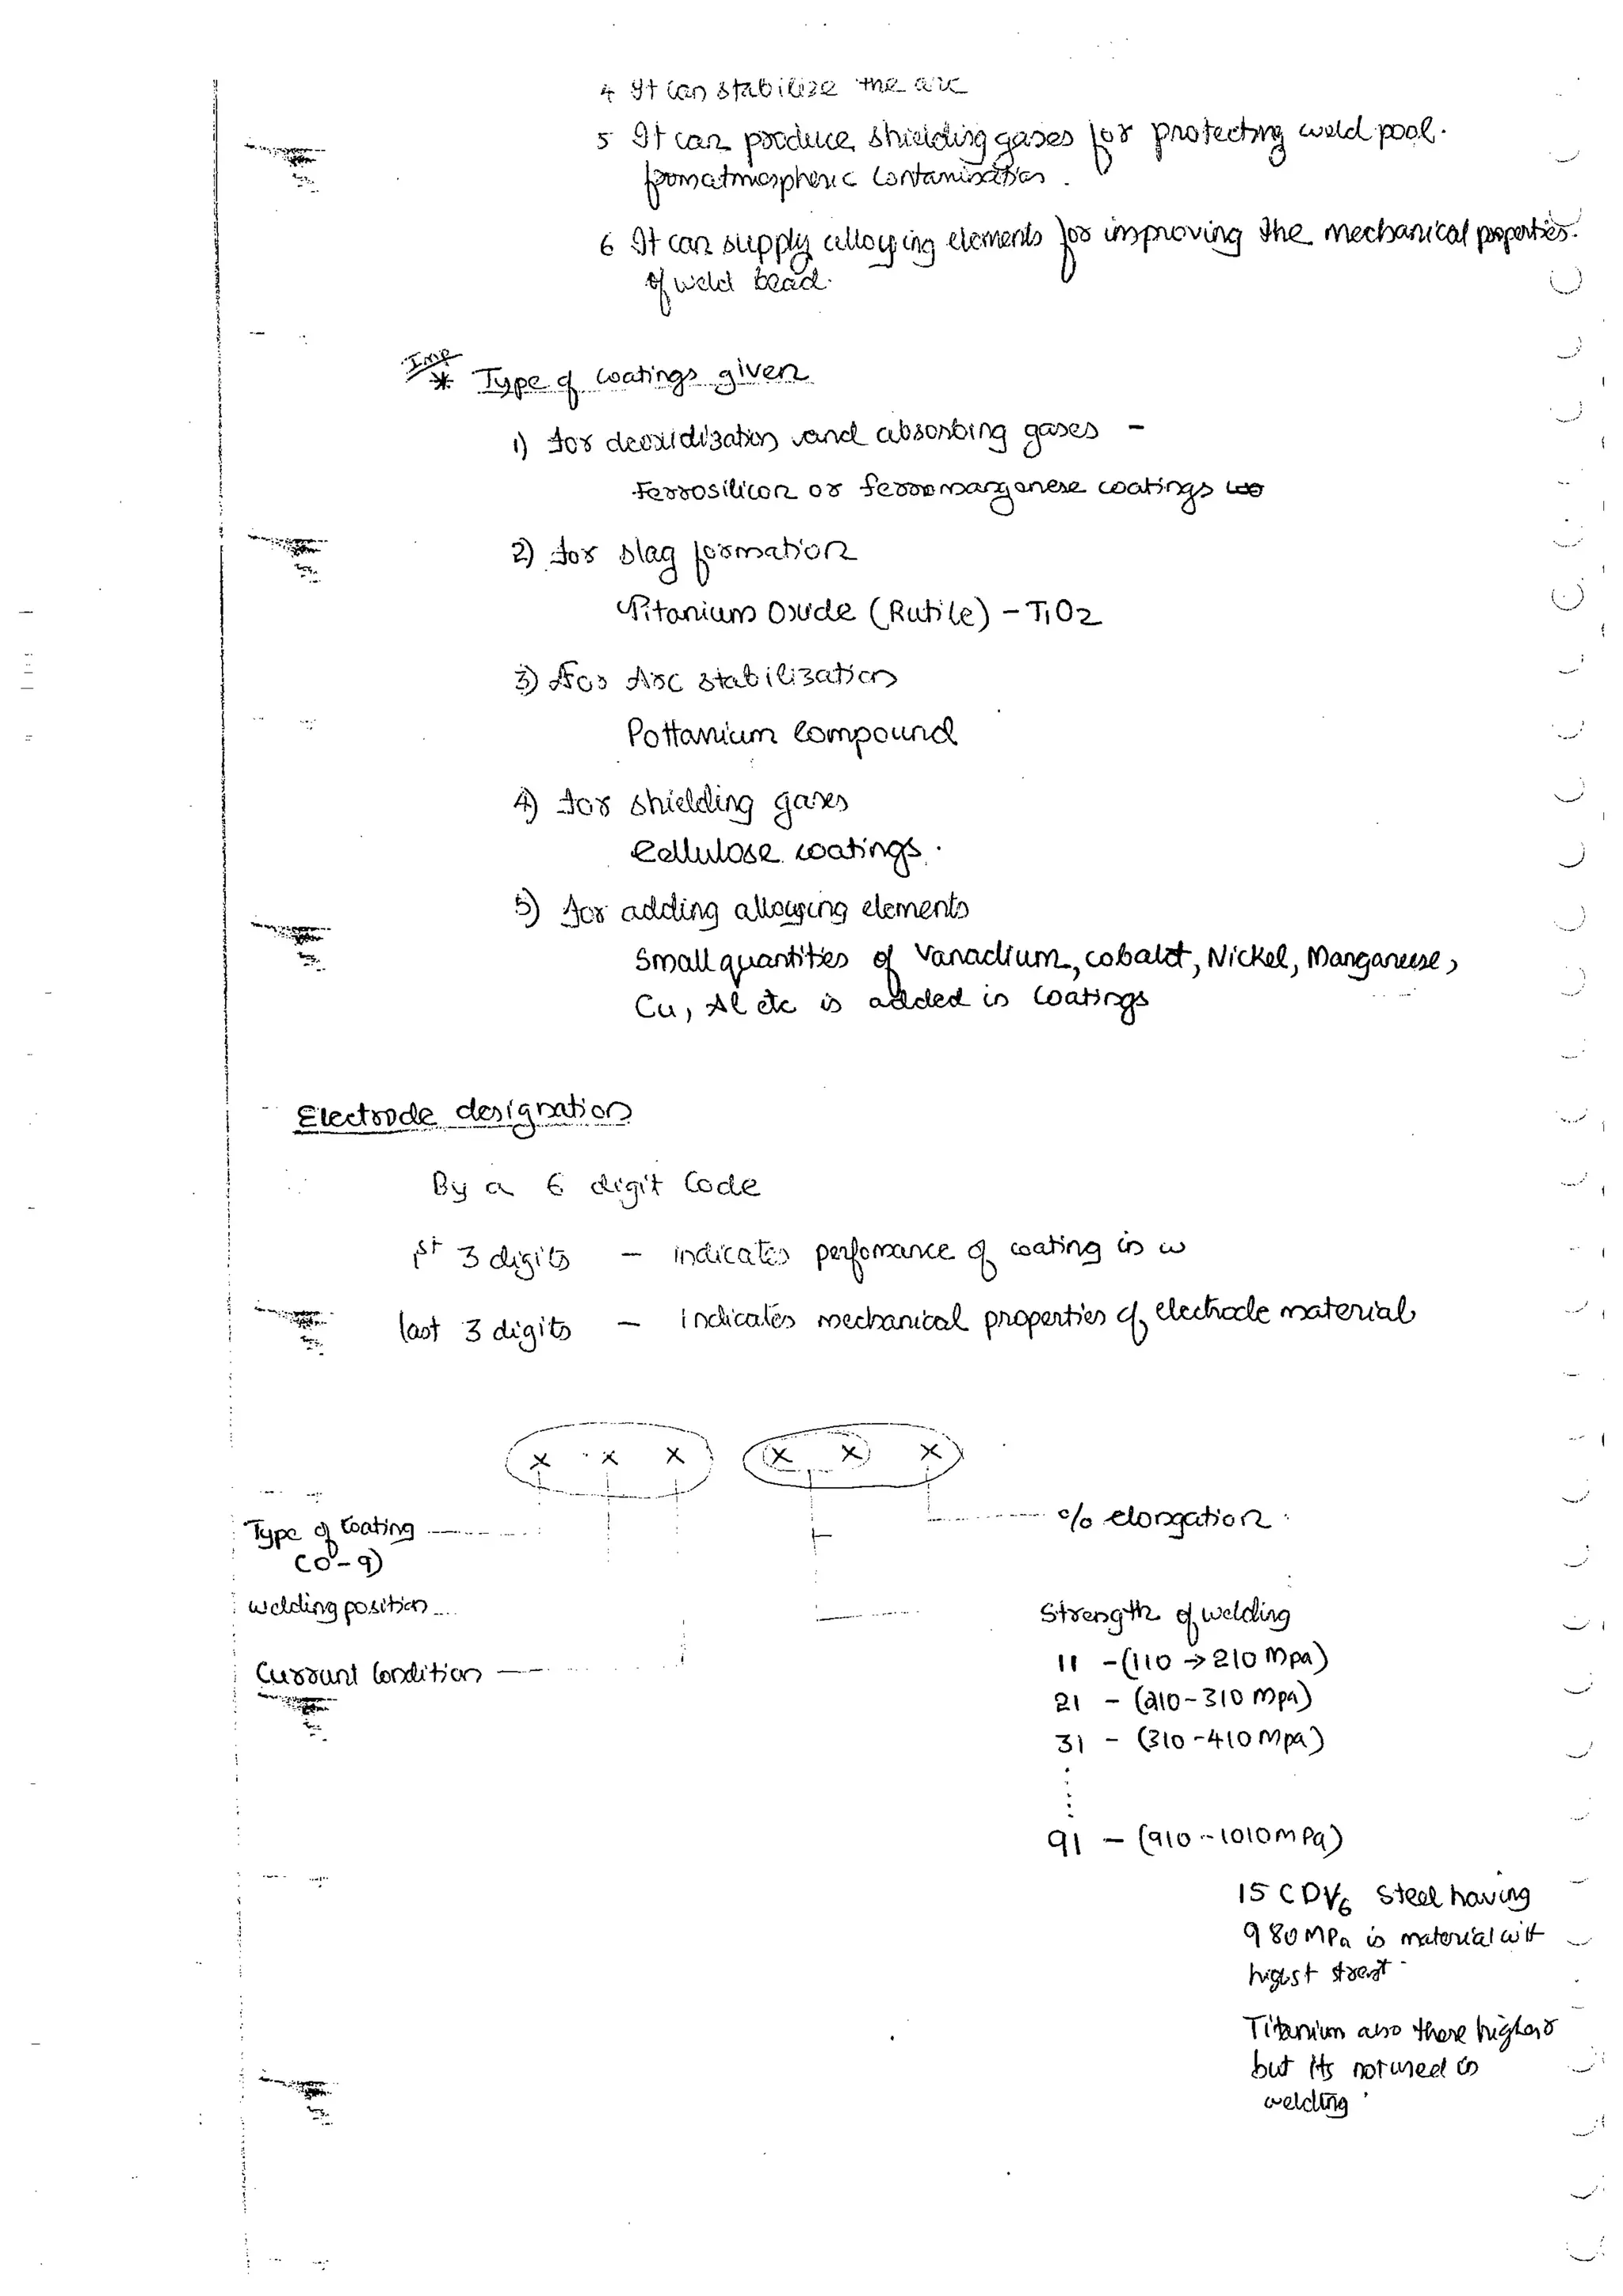 4 It can stabilize the arc
5 It can produce shielding gases for protecting weld pool.
from atmospheric contamination.
6 It can supply alloying elements for improving the mechanical properties.
of weld bead.
Imp
* Type of coatings given
1) for deoxidization and absorbing gases -
Ferrosilicon or ferromanganese coatings
2) for slag formation
Titanium Oxide (Rutile) - TiO2
3) For Arc stabilization
Pottassium Compound
4) for shielding gases
Cellulose coatings.
5) for adding alloying elements
Small quantities of Vanadium, cobalt, Nickel, Manganese,
Cu, Al etc is added in coatings
Electrode designation
By a 6 digit Code
1st 3 digits - indicates perfomance of coating in w
last 3 digits - indicates mechanical properties of electrode material
x x x x x x
Type of Coating
(0-9)
% elongation
welding position
Strength of welding
Currant Condition
11 - (110 → 210 Mpa)
21 - (210 - 310 Mpa)
31 - (310 - 410 Mpa)
91 - (910 - 1010 MPa)
15 CDV6 Steel having
980 MPa is material with
highst
Titanium also there higher
but its not used in
welding